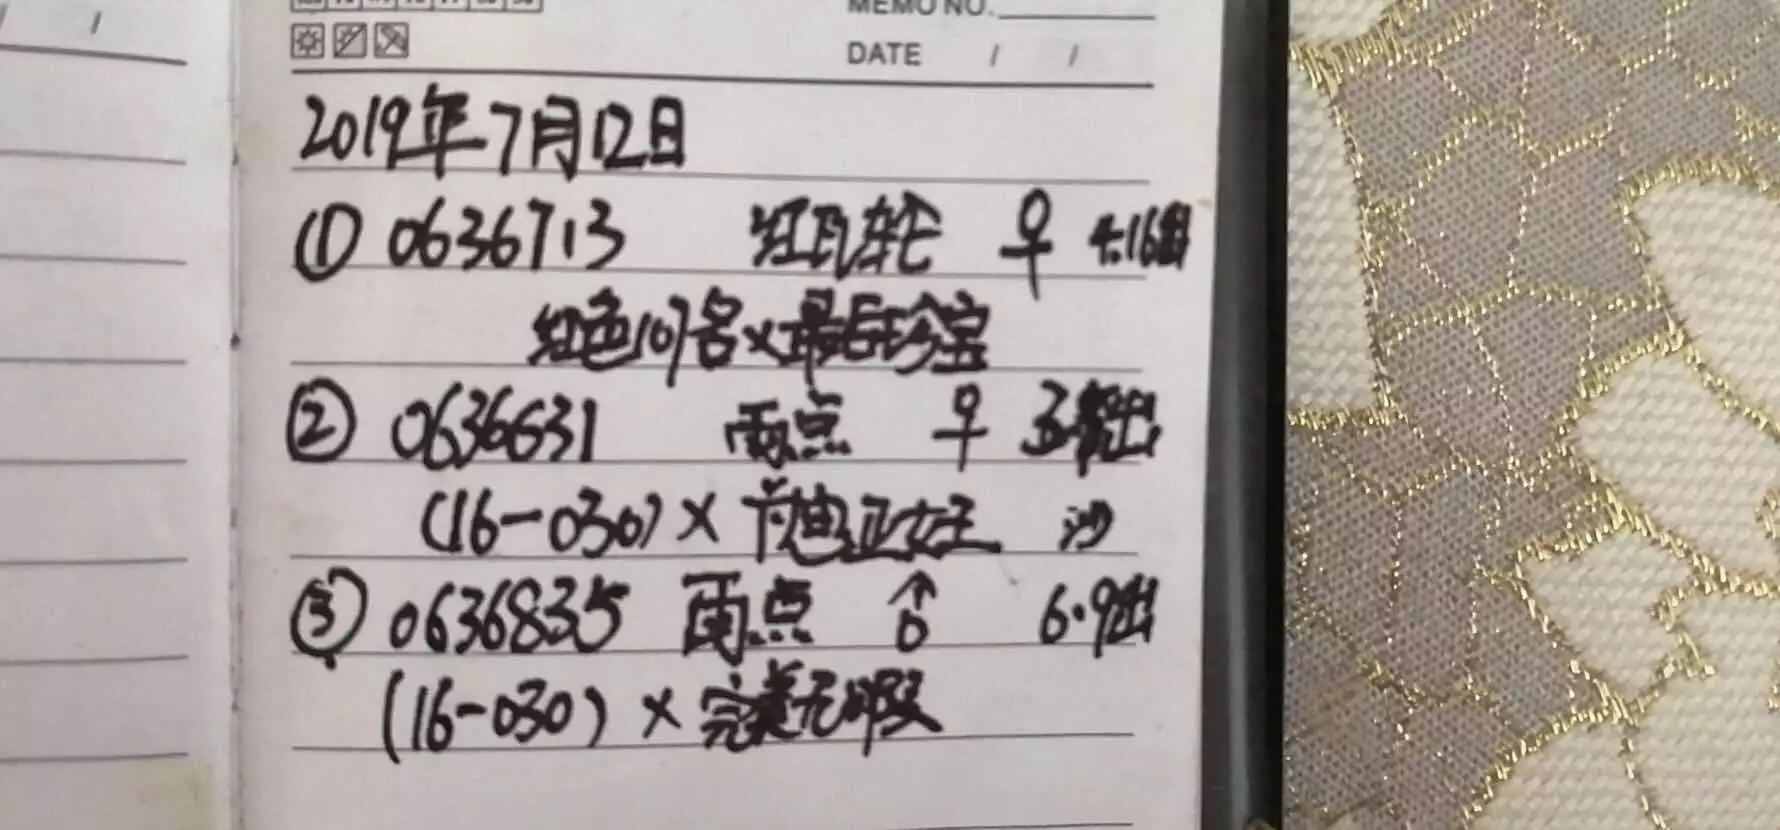 MEMO NO.
DATE / /
2019年7月12日
① 0636713 红瓦轮 ♀ 4.16出
红色107名×最后珍宝
② 0636631 雨点 ♀ 出
(16-030)× 女王 沙
③ 0636835 雨点 ♂ 6.9出
(16-030)×完美无暇